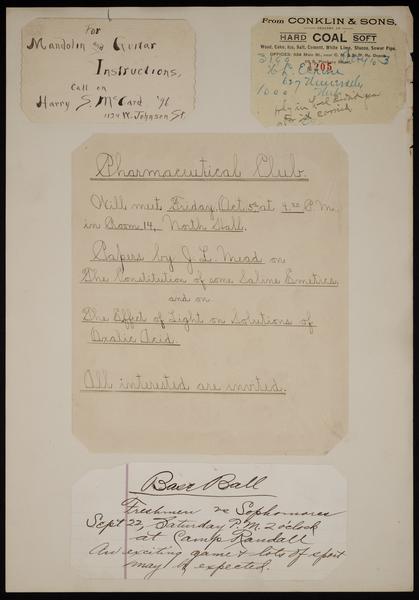 For
Mandolin & Guitar
Instructions,
Call on
Harry S. McCard '96
1124 W. Johnson St.
From CONKLIN & SONS,
DEALERS IN
HARD COAL SOFT
Wood, Coke, Ice, Salt, Cement, White Lime, Stucco, Sewer Pipe.
205
Pharmaceutical Club
Will meet Friday, Oct. 5th at 4.30 P.M.
in Room 14, North Hall.
Papers by J. L. Mead on
The Constitution of some Saline Emetics
and on
The Effect of Light on Solutions of
Oxalic Acid.
All interested are invited.
Base Ball
Freshmen vs Sophomores
Sept 22, Saturday P.M. 2 o'clock
at Camp Randall
An exciting game & lots of sport
may be expected.